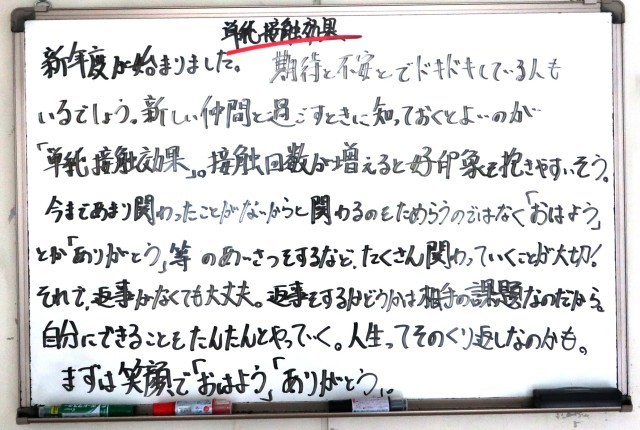 単純接触効果
新年度が始まりました。 期待と不安とでドキドキしている人も
いるでしょう。新しい仲間と過ごすときに知っておくとよいのが
「単純接触効果」。接触回数が増えると好印象を抱きやすいそう。
今まであまり関わったことがないからと関わるのをためらうのではなく「おはよう」
とか「ありがとう」等のあいさつをするなど、たくさん関わっていくことが大切!
それで、返事がなくても大丈夫。返事をするかどうかは相手の課題なのだから。
自分にできることをたんたんとやっていく。人生ってそのくり返しなのかも。
まずは笑顔で「おはよう」「ありがとう」。